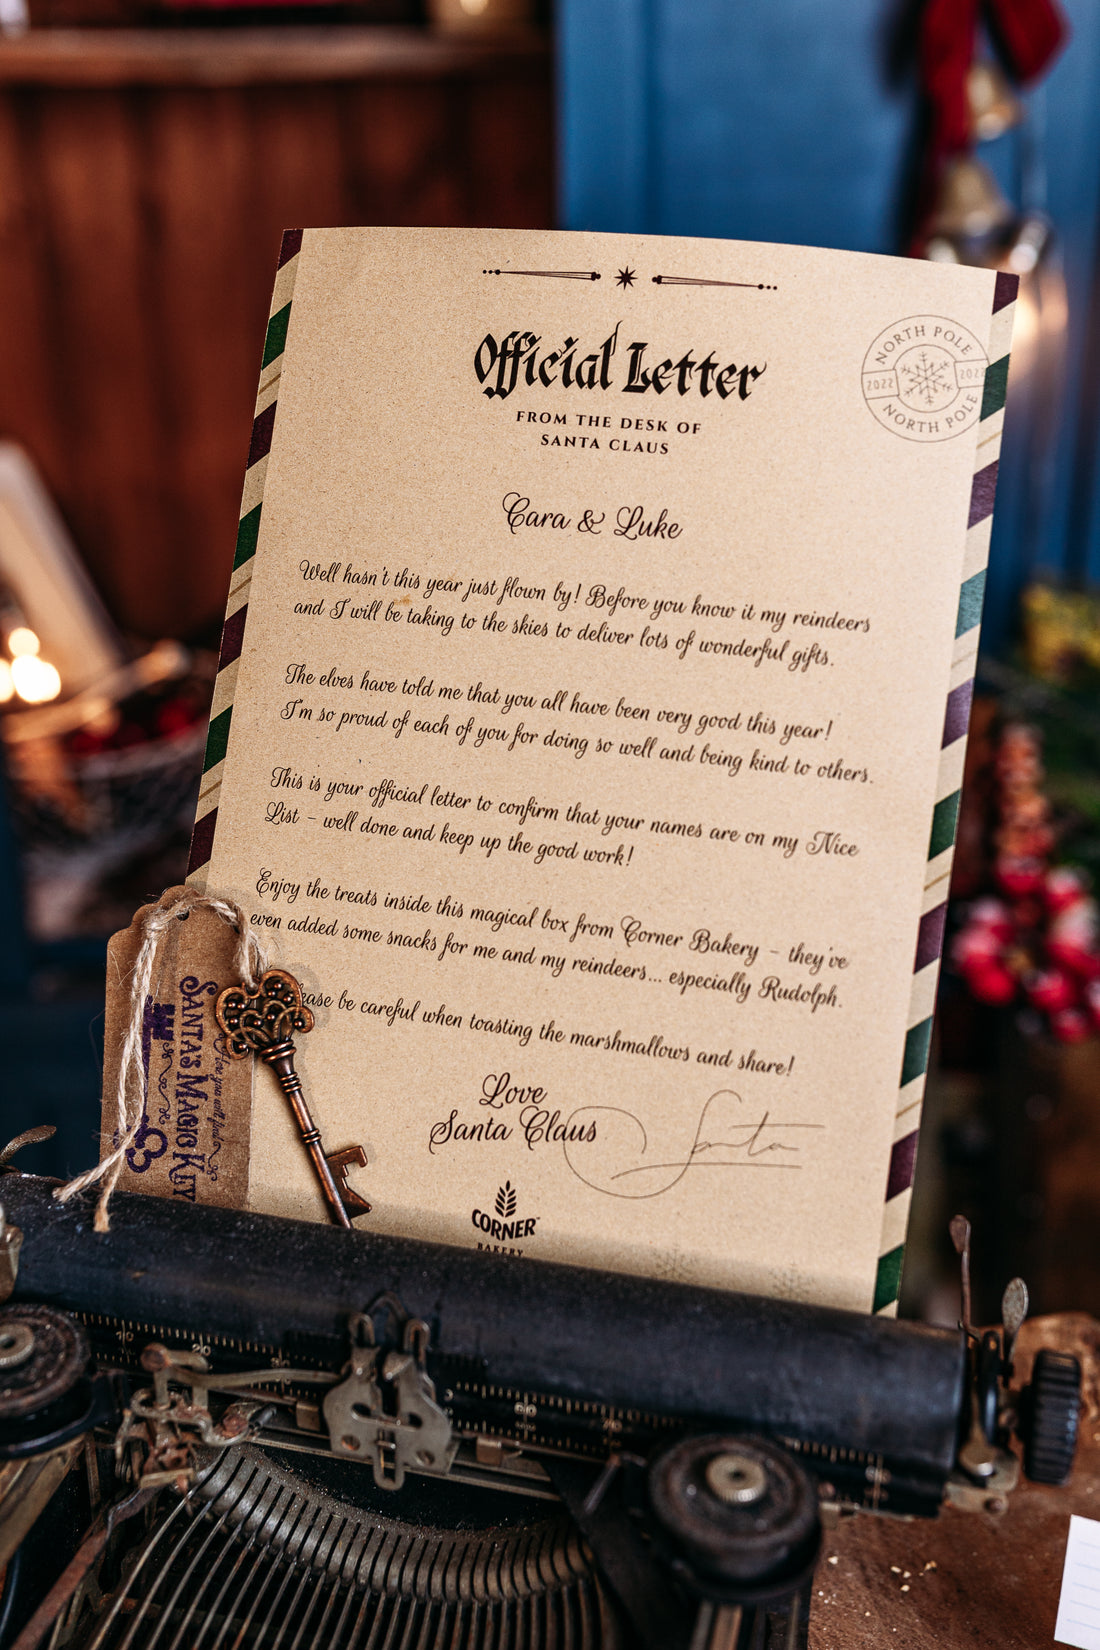 Official Letter
FROM THE DESK OF
SANTA CLAUS
NORTH POLE
2022 2022
NORTH POLE
Cara & Luke
Well hasn't this year just flown by! Before you know it my reindeers
and I will be taking to the skies to deliver lots of wonderful gifts.
The elves have told me that you all have been very good this year!
I'm so proud of each of you for doing so well and being kind to others.
This is your official letter to confirm that your names are on my Nice
List – well done and keep up the good work!
Enjoy the treats inside this magical box from Corner Bakery – they've
even added some snacks for me and my reindeers... especially Rudolph.
ease be careful when toasting the marshmallows and share!
Love
Santa Claus
Santa
CORNER
BAKERY
SANTA'S MAGIC KEY
20